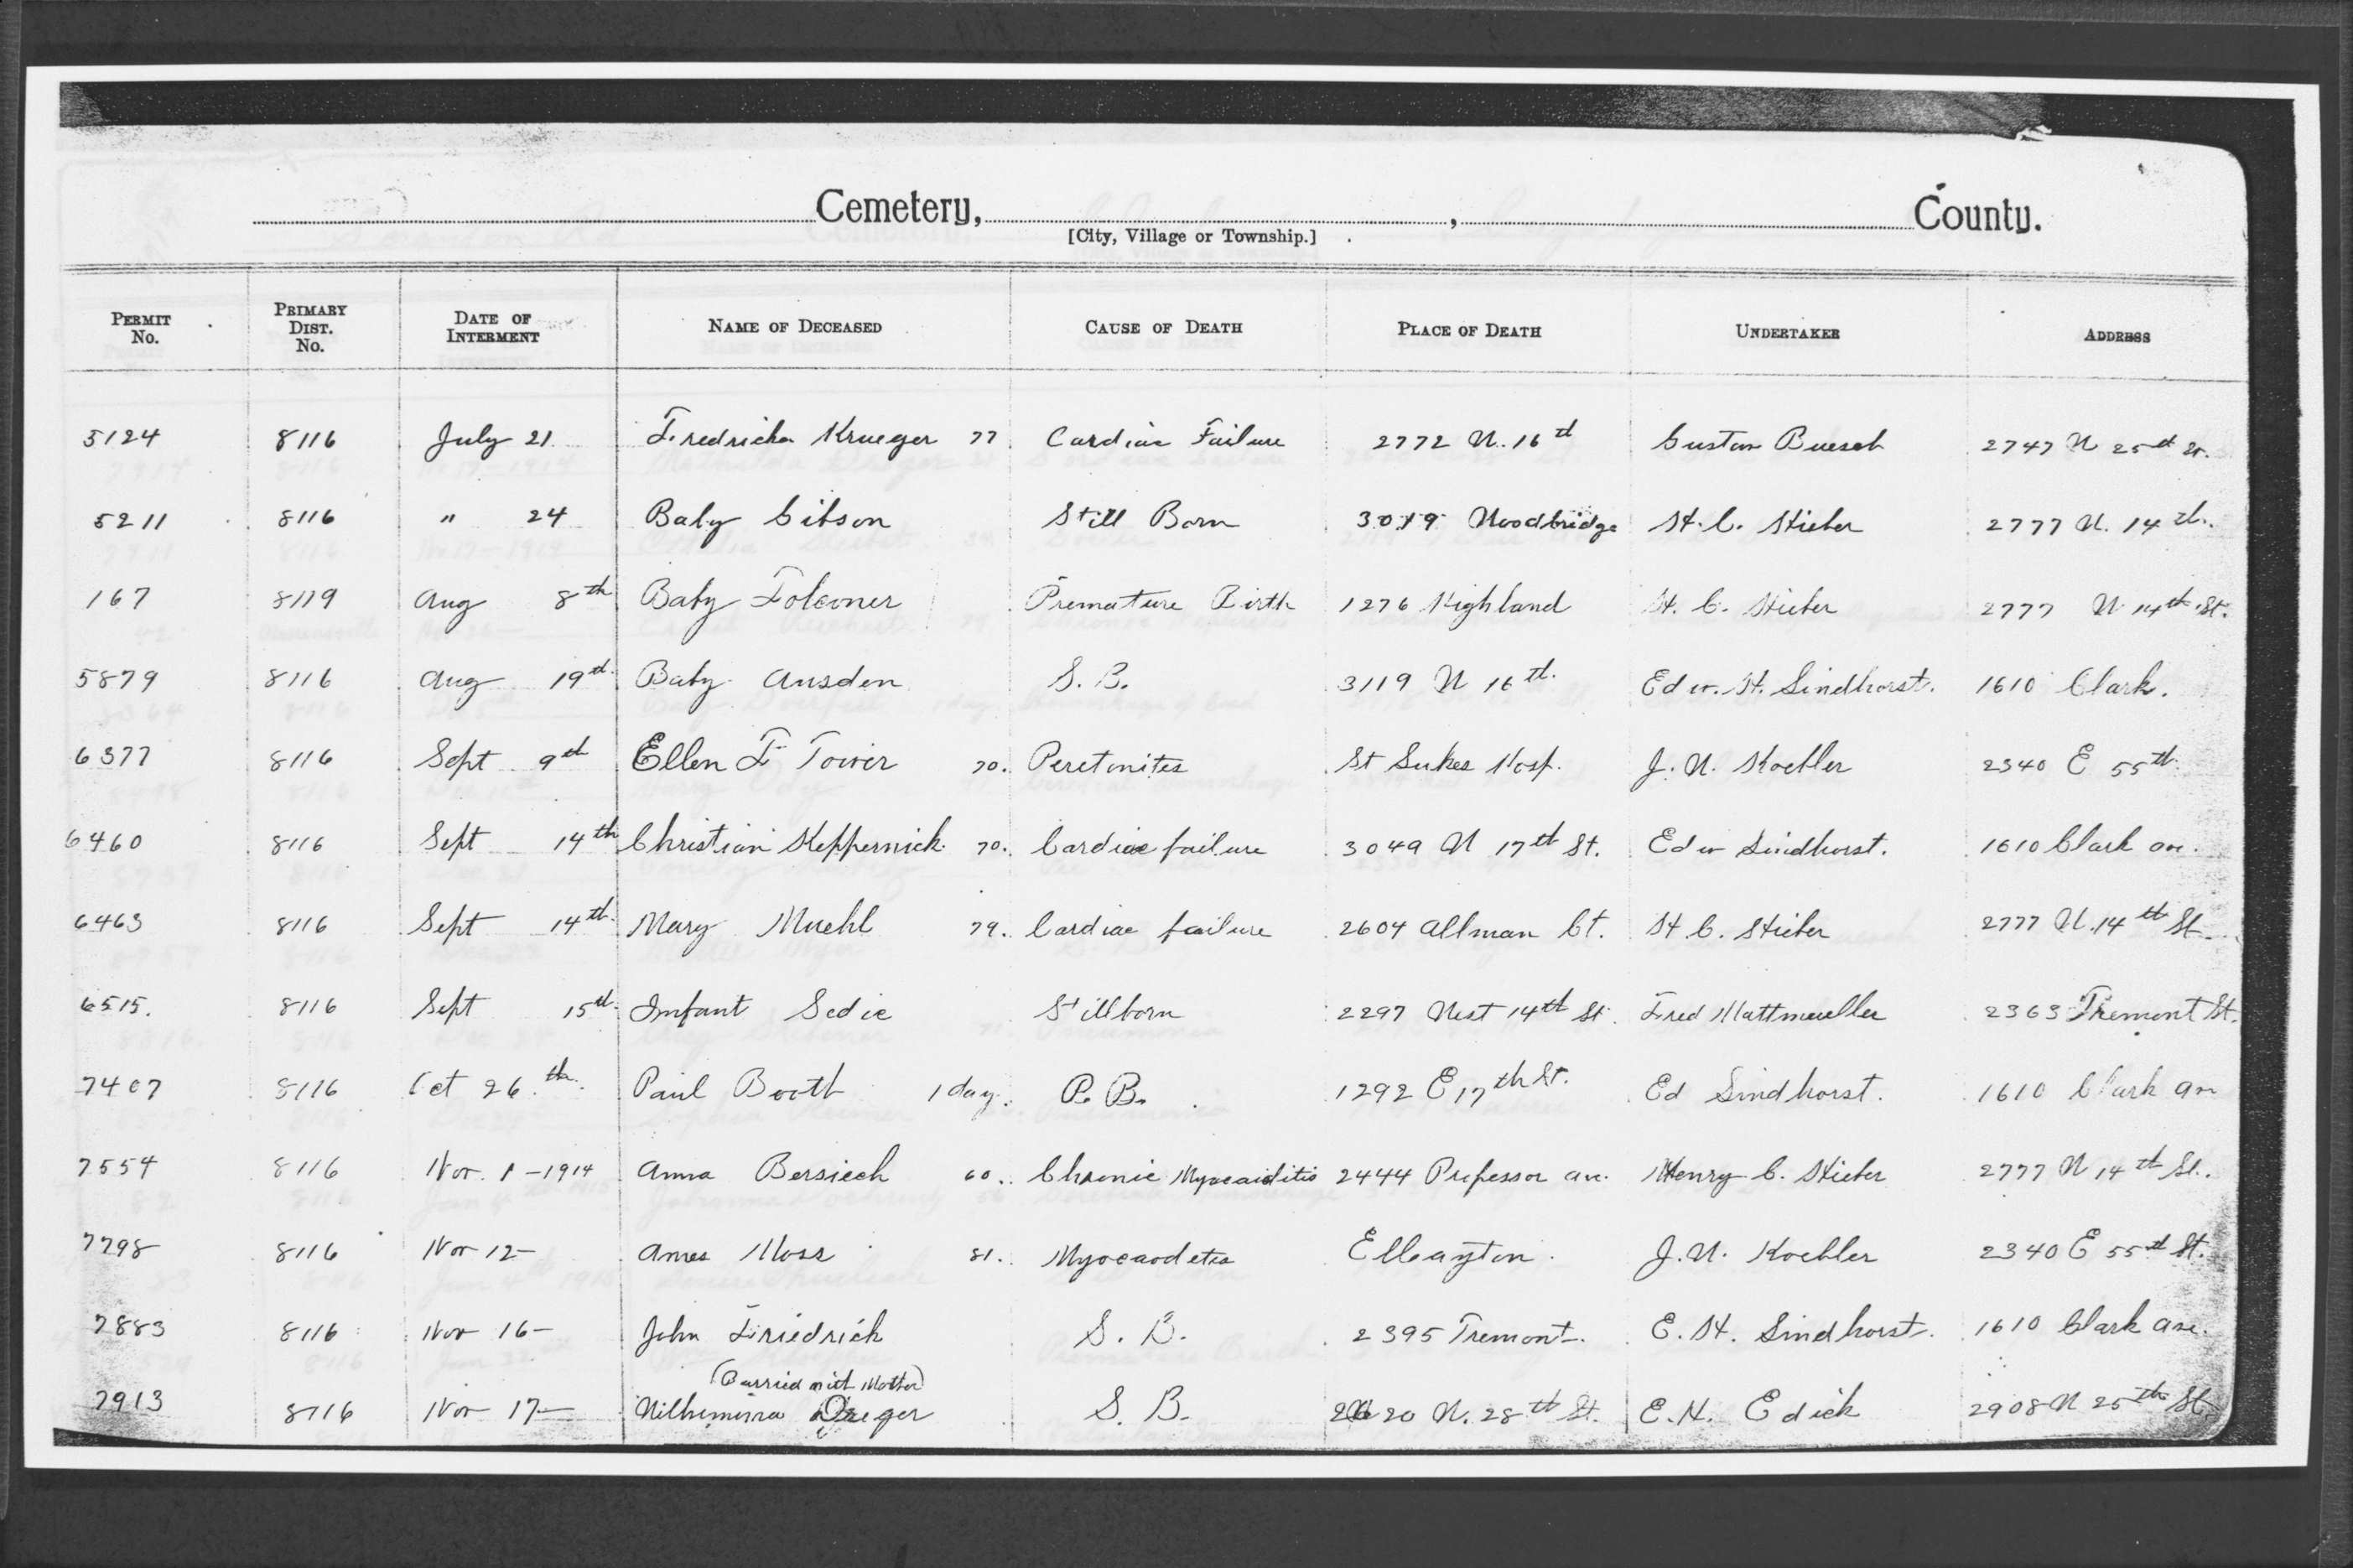 Cemetery, , County.
[City, Village or Township.]
PERMIT No. PRIMARY DIST. No. DATE OF INTERMENT NAME OF DECEASED CAUSE OF DEATH PLACE OF DEATH UNDERTAKER ADDRESS
5124 8116 July 21 Fredricka Krueger 77 Cardiac Failure 2772 W. 16th Gustav Buesch 2747 W 25th St.
5211 8116 " 24 Baby Gibson Still Born 3019 Woodbridge H. C. Stieber 2777 W. 14th.
167 8119 Aug 8th Baby Folconer Premature Birth 1276 Highland H. C. Stieber 2777 W 14th St.
5879 8116 Aug 19th Baby Ausden S. B. 3119 W 16th. Edw. H. Lindhorst. 1610 Clark.
6377 8116 Sept 9th Ellen F Tower 70. Peretonites St Lukes Hosp. J. W. Koebler 2340 E 55th.
6460 8116 Sept 14th Christian Keppernick. 70. Cardiac failure 3049 W 17th St. Edw Lindhorst. 1610 Clark av.
6463 8116 Sept 14th. Mary Muehl 79. Cardiac failure 2604 Allman Ct. H. C. Stieber 2777 W. 14th St
6515. 8116 Sept 15th. Infant Sedie Stillborn 2297 West 14th St. Fred Mattmueller 2363 Tremont St.
7407 8116 Oct 26.th. Paul Booth 1 day. P. B. 1292 E 17th St. Ed Lindhorst. 1610 Clark av
7554 8116 Nov. 1 - 1914 Anna Bersiech 60. Chronic Myocarditis 2444 Professor av. Henry C. Stieber 2777 W 14th St.
7798 8116 Nov 12 - Moss 81. Myocardetes J. W. Koebler 2340 E 55th St.
7883 8116 Nov 16 - John Friedrich S. B. 2395 Tremont. E. H. Lindhorst. 1610 Clark ave.
(Burried with Mother)
7913 8116 Nov 17 - Wilhimina Draeger S. B. 20 W. 28th St. E. H. Edick 2908 W 25th St.